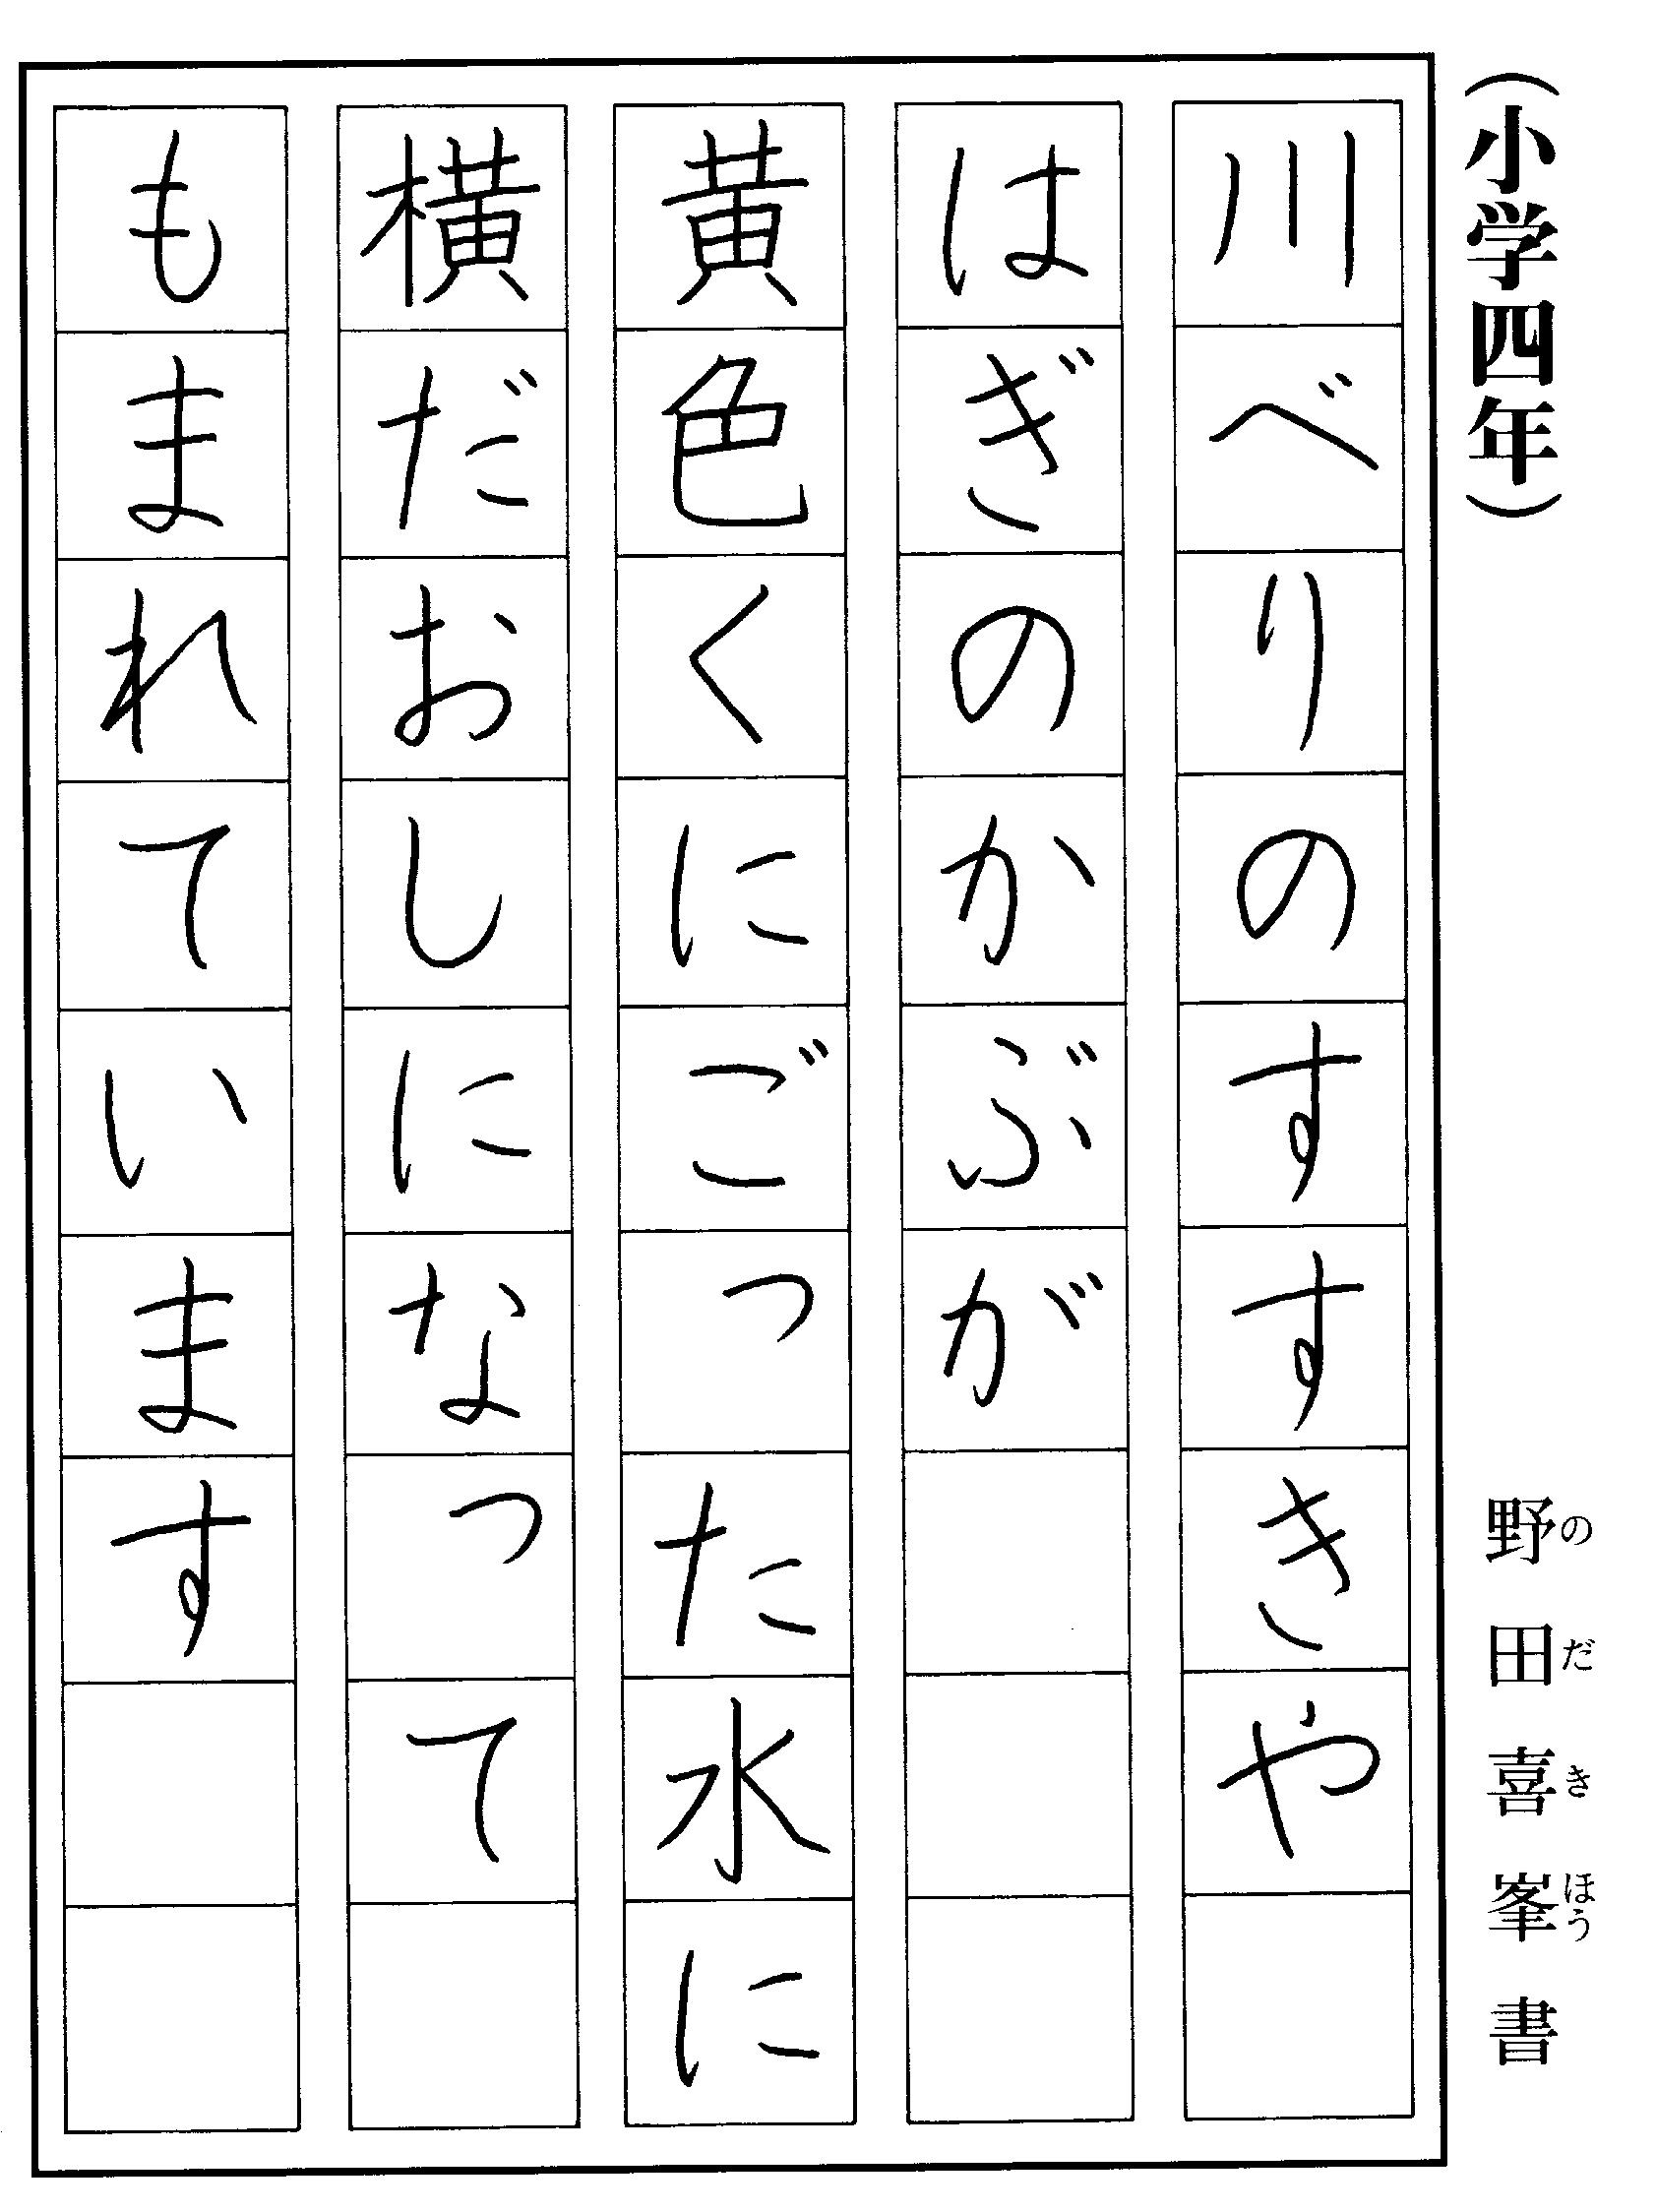 （小学四年）
野田喜峯書
のだきほう
川べりのすすきや
はぎのかぶが
黄色くにごった水に
横だおしになって
もまれています